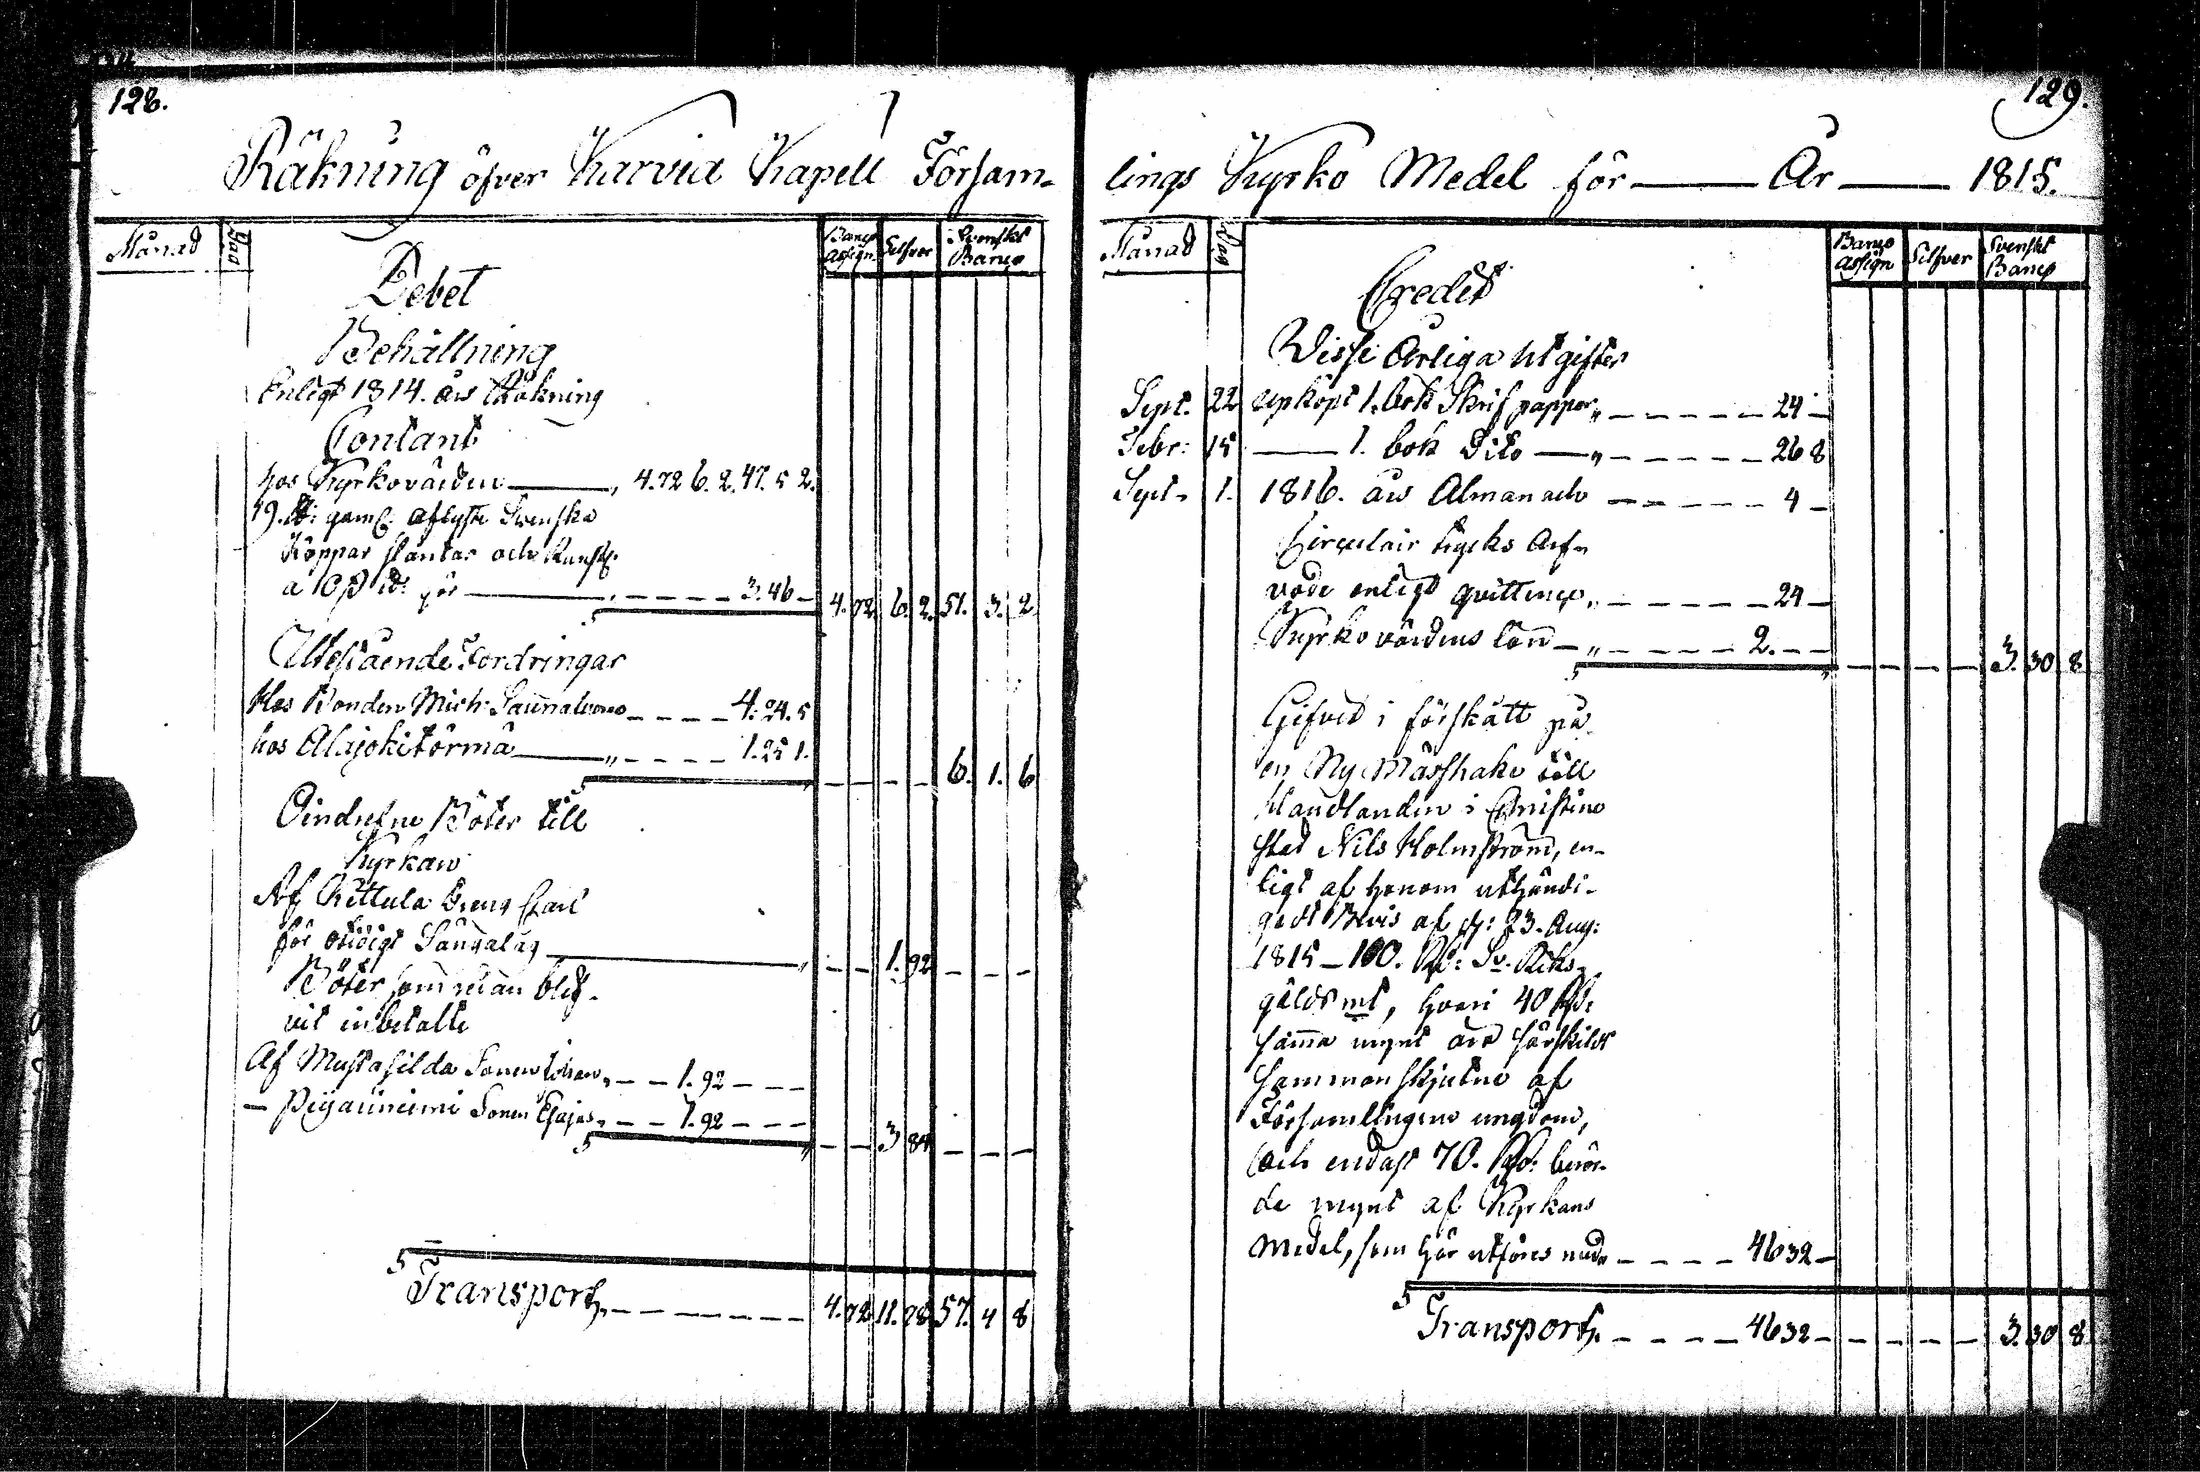 128.
Räkning öfver Karvia Kapell Försam-
Månad
Dag
Banco Assign.
Silfver
Svenskt Banco
Debet
Behållning
Enligt 1814. års Räkning
Contant
hos Kyrkovärden — 4.72 6.2. 47. 5 2.
19. gaml. aflyste Svenska
Koppar slantar och
a 10 ß gör — 3.46 — 4. 72. 6. 2. 51. 3. 2
Utestående Fordringar
Hos Bonden Mich: — 4. 24. 5
hos Alajokitörmä — 1. 25 1.
6. 1. 6
Oindrefne Böter till
Kyrkan
Af Kettula Dreng Carl
för otidigt Sängalag — 1. 92 — — —
Böter, som redan blif-
vit inbetalte
Af Mustasilda Sonen Johan — 1. 92 — —
— Peijariniemi Sonen Esajas — 1. 92 — — —
— — 3 84 — — —
Transport — 4. 72 11. 78 57. 4 8
129.
lings Kyrko Medel för — År — 1815.
Månad
Dag
Banco Assign
Silfver
Svenskt Banco
Credit
Wisse Årliga Utgifter
Sept. 22 upköpt 1. bok Skrifpapper — 24 —
Febr: 15 — 1. bok Dito — 26 8
Sept. 1. 1816. års Almanach — 4 —
Circulair trycks Arf-
vode enligt quittence — 24 —
Kyrkovärdens lön — 2. — —
3. 30 8
Gifvit i förskått på
en Ny Mässhake till
Handlanden i Christine
stad Nils Holmström, en-
ligt af honom uthändi-
gadt Bevis af d: 23. Aug:
1815 — 100. Rd: Sv. Riks-
gälds mt, hvari 40 Rd:
samma mynt äro särskildt
sammanskjutne af
Församlingens ungdom,
och endast 70. Rd: berör-
de mynt af Kyrkans
medel, som här utföres med — 46 32 —
Transport — 46 32 — — — — 3. 30 8